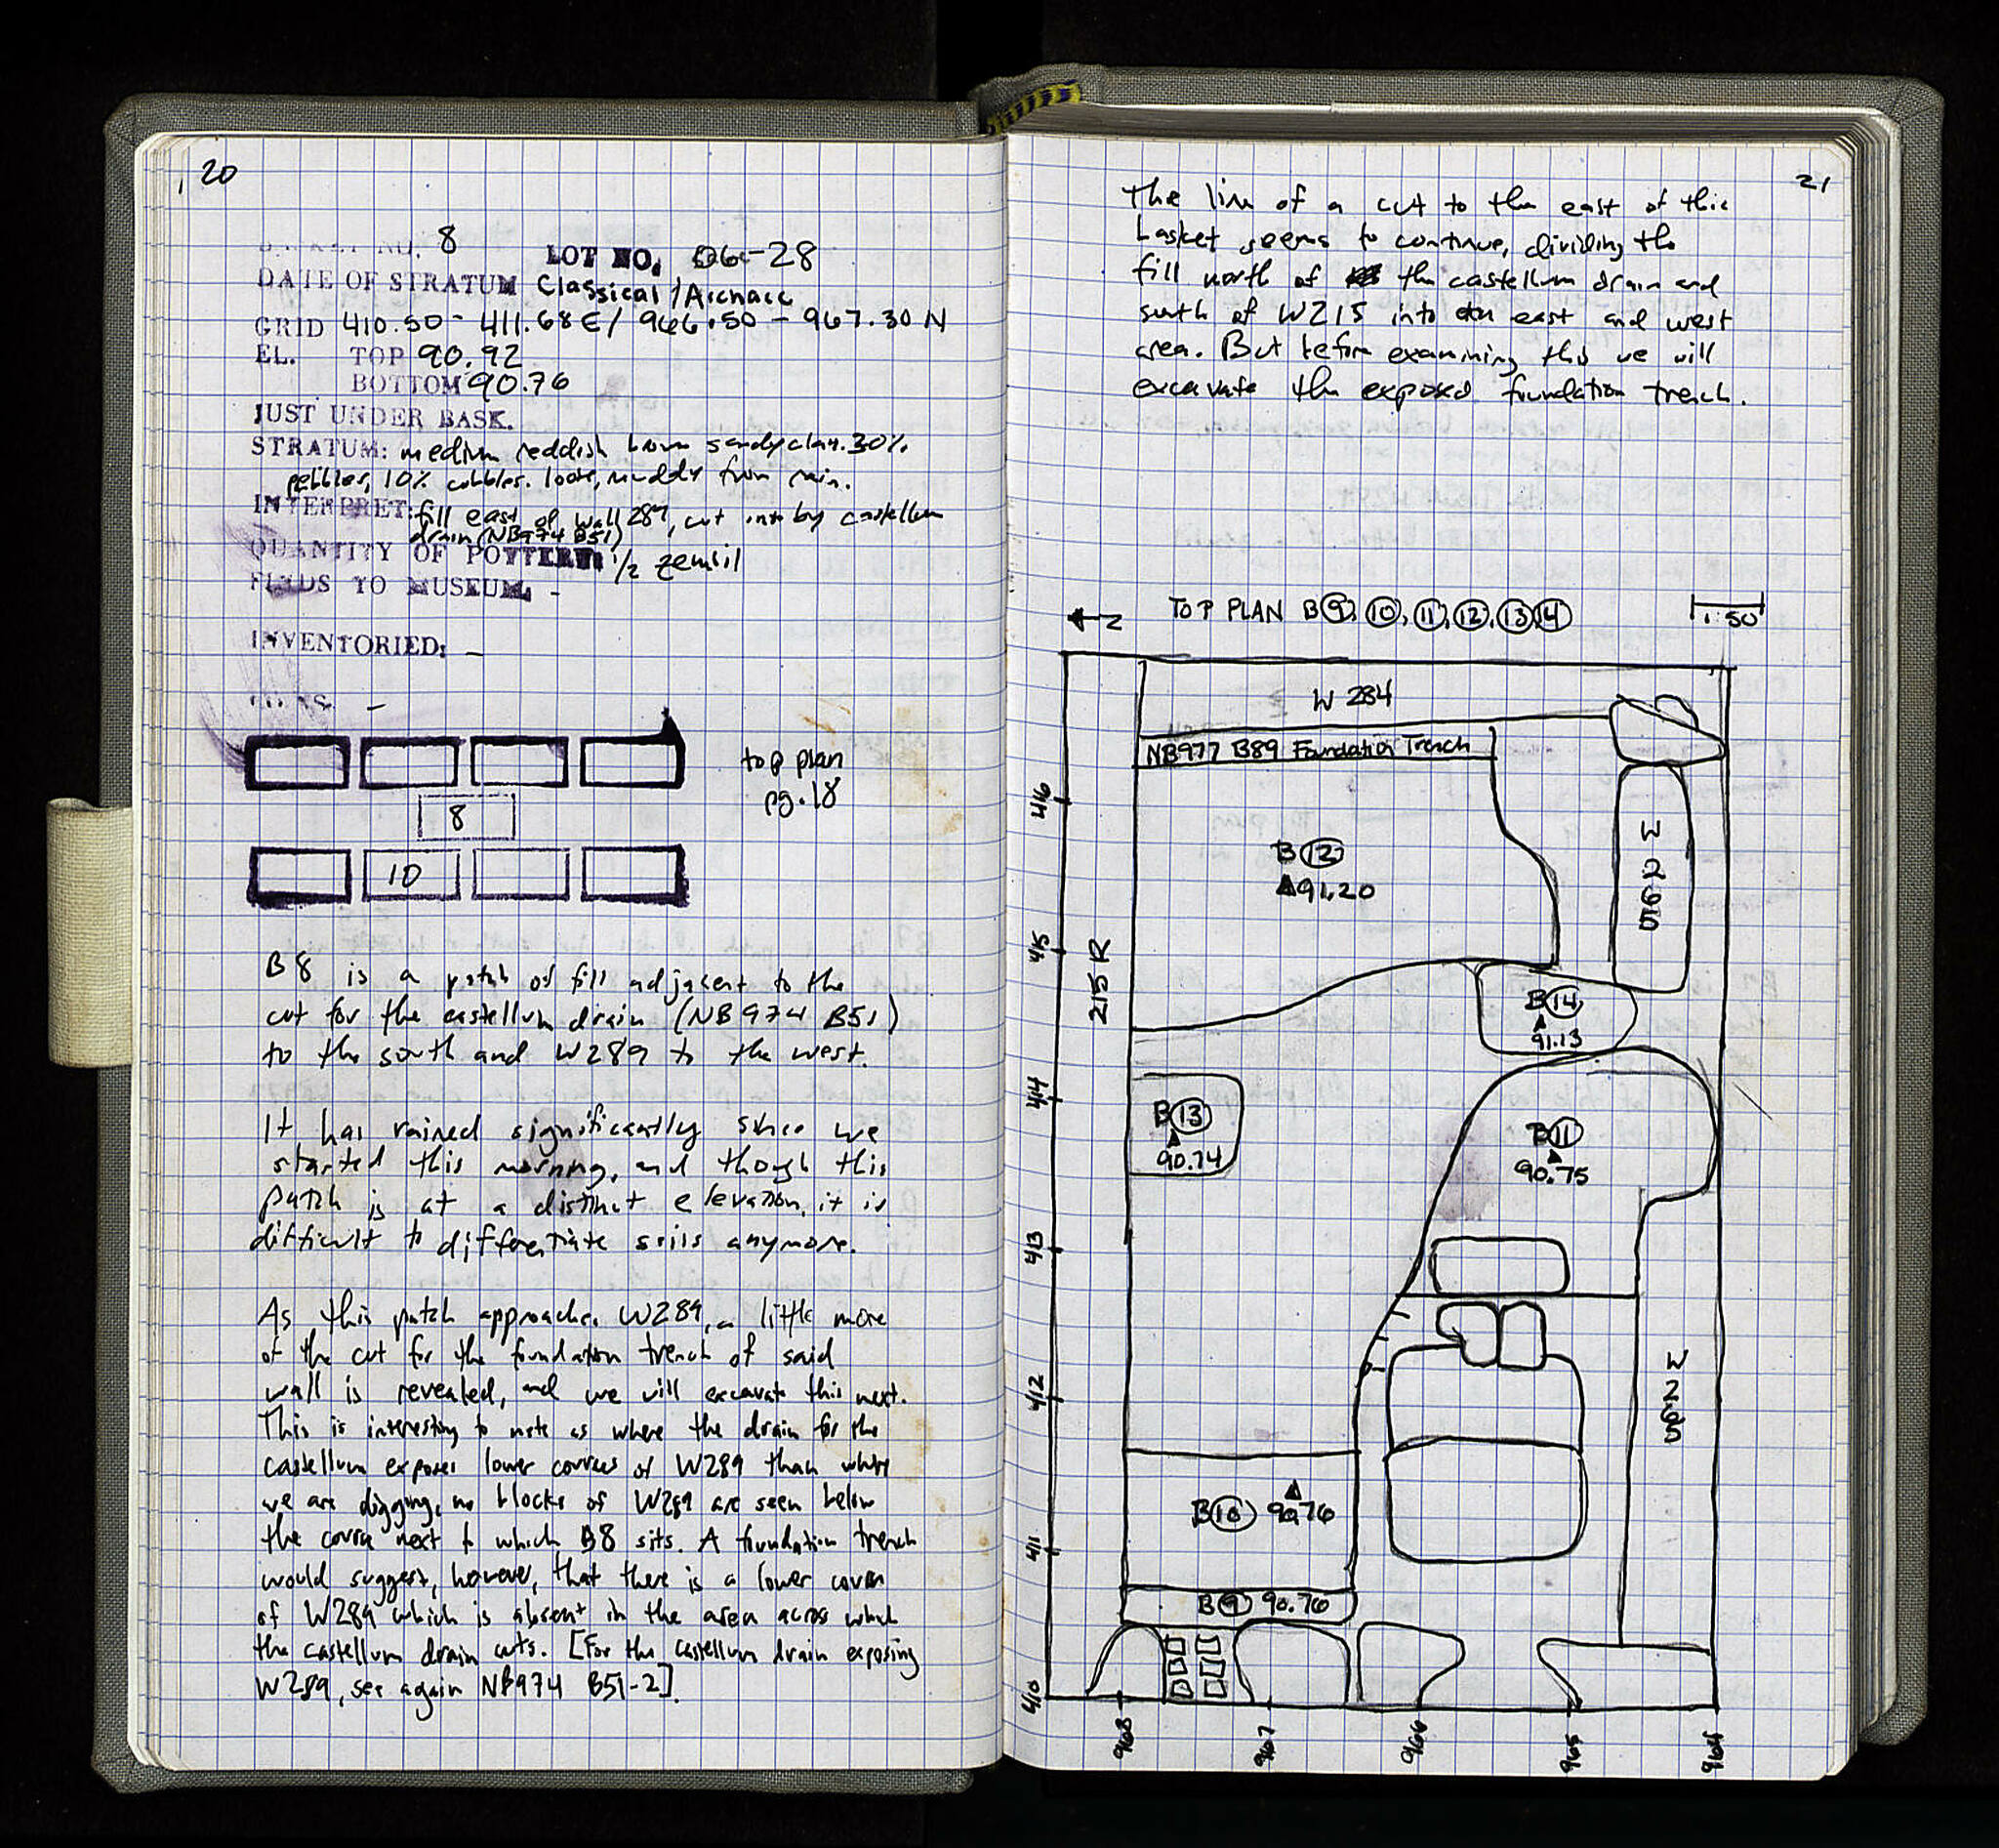 20
BASKET NO. 8 LOT NO. 06-28
DATE OF STRATUM Classical/Archaic
GRID 410.50 - 411.68 E / 966.50 - 967.30 N
EL. TOP 90.92
BOTTOM 90.76
JUST UNDER BASK.
STRATUM: medium reddish brown sandy clay. 30%
pebbles, 10% cobbles. loose, muddy from rain.
INTERPRET: fill east of wall 289, cut into by castellum
drain (NB974 B51)
QUANTITY OF POTTERY: 1/2 zembil
FINDS TO MUSEUM: -
INVENTORIED: -
COINS. -
top plan
pg. 18
8
10
B8 is a patch of fill adjacent to the
cut for the castellum drain (NB974 B51)
to the south and W289 to the west.
It has rained significantly since we
started this morning, and though this
patch is at a distinct elevation, it is
difficult to differentiate soils anymore.
As this patch approaches W289, a little more
of the cut for the foundation trench of said
wall is revealed, and we will excavate this next.
This is interesting to note as where the drain for the
castellum exposes lower courses of W289 than where
we are digging, no blocks of W289 are seen below
the course next to which B8 sits. A foundation trench
would suggest, however, that there is a lower course
of W289 which is absent in the area across which
the castellum drain cuts. [For the castellum drain exposing
W289, see again NB974 B51-2].
21
The line of a cut to the east of this
basket seems to continue, dividing the
fill north of the castellum drain and
south of W215 into an east and west
area. But before examining this we will
excavate the exposed foundation trench.
N
TOP PLAN B 9, 10, 11, 12, 13, 14
1:50
W 284
NB977 B89 Foundation Trench
416
B 12
91.20
W 265
415
215 R
B 14
91.13
414
B 13
90.74
B 11
90.75
413
412
W 265
B 10 90.76
411
B 9 90.76
410
968
967
966
965
964